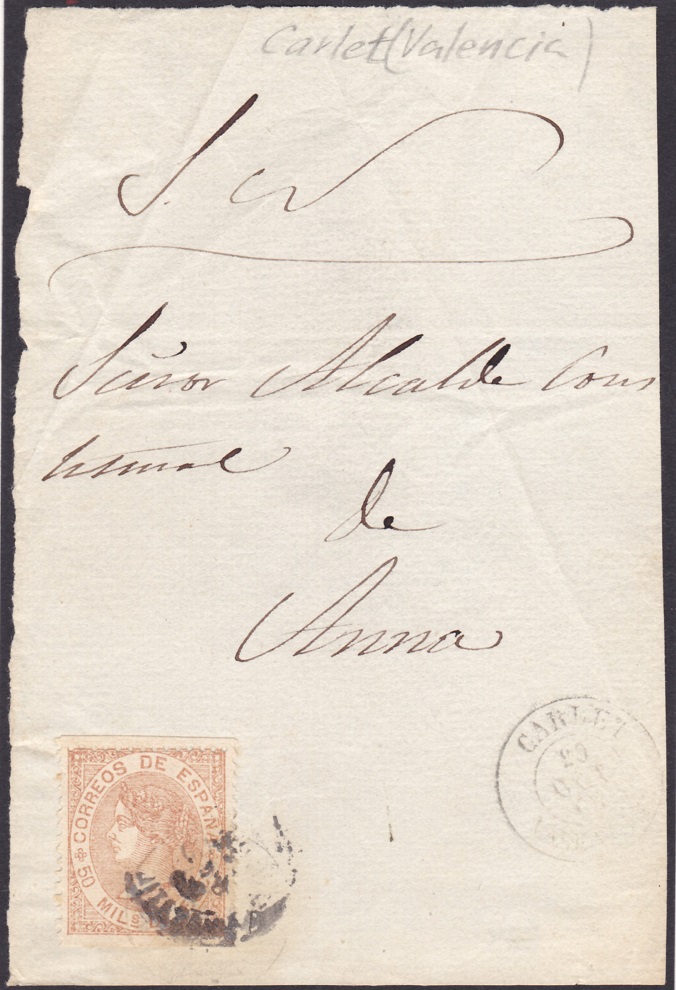 Carlet (Valencia)
S. N
Señor Alcalde Cons
titucional
de
Anna
CARLET
20
OCT
CORREOS DE ESPAÑA
50 MILS